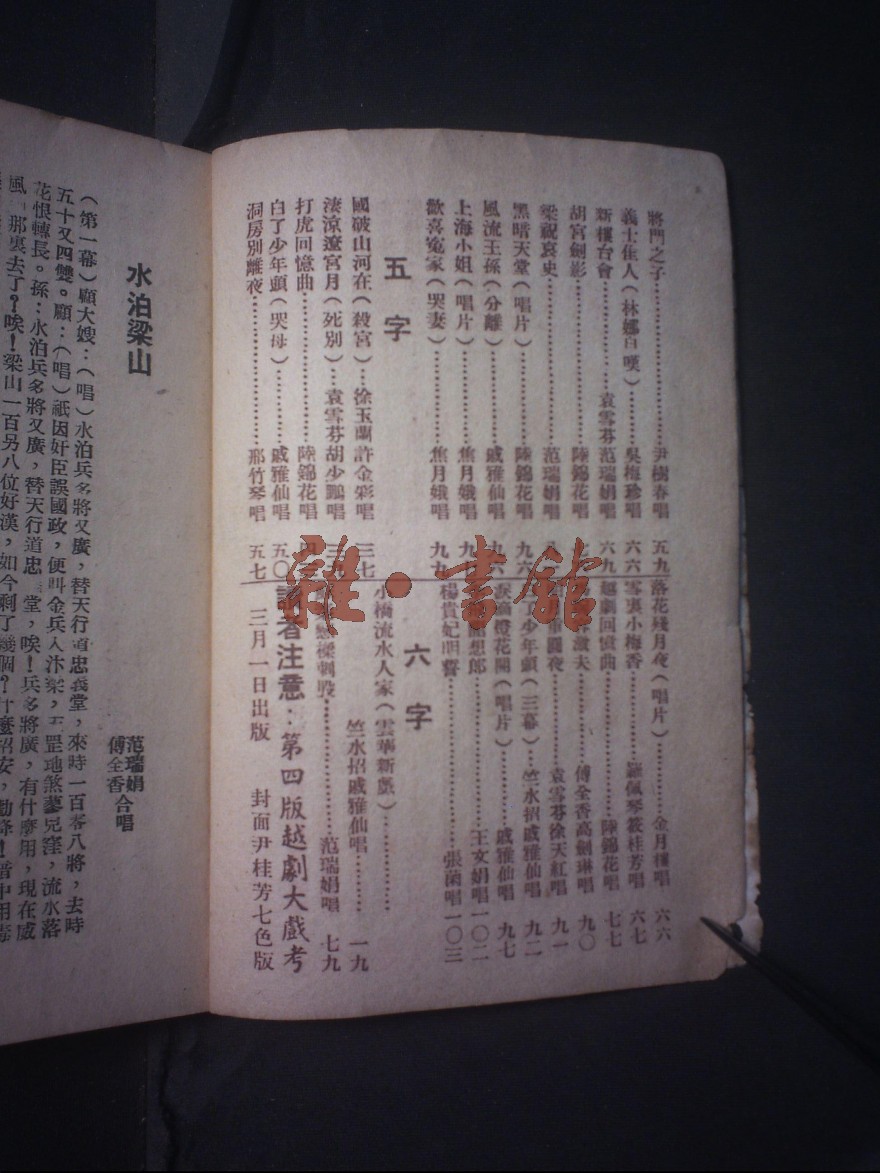 將門之子……尹樹春唱 五九
義士佳人(林娜自嘆)……吳梅珍唱 六六
新樓台會……袁雪芬范瑞娟唱 六九
胡宮劍影……陸錦花唱
梁祝哀史……范瑞娟唱 八
黑暗天堂(唱片)……陸錦花唱 九六
風流王孫(分離)……戚雅仙唱 九六
上海小姐(唱片)……焦月娥唱 九
歡喜寃家(哭妻)……焦月娥唱 九九
五字
國破山河在(殺宮)…徐玉蘭許金彩唱 三七
淒涼遼宮月(死別)…袁雪芬胡少鵬唱 三
打虎回憶曲……陸錦花唱 四
白了少年頭(哭母)……戚雅仙唱 五〇
洞房別離夜……邢竹琴唱 五七
落花殘月夜(唱片)……金月樓唱 六六
雪裏小梅香……羅佩琴筱桂芳唱 六七
越劇回憶曲……陸錦花唱 七七
夫……傅全香高劍琳唱 九〇
圓夜……袁雪芬徐天紅唱 九一
了少年頭(三幕)…竺水招戚雅仙唱 九二
燈花開(唱片)……戚雅仙唱 九七
想郎……王文娟唱 一〇二
楊貴妃明誓……張茵唱 一〇三
六字
小橋流水人家(雲華新戲)……
竺水招戚雅仙唱……一九
刺毀……范瑞娟唱 七九
讀者注意:第四版越劇大戲考
三月一日出版 封面尹桂芳七色版
水泊梁山
范瑞娟
傅全香 合唱
(第一幕)顧大嫂:(唱)水泊兵多將又廣,替天行道忠義堂,來時一百零八將,去時
五十又四雙。顧:(唱)祇因奸臣誤國政,便叫金兵入汴梁,天罡地煞蓼兒窪,流水落
花恨轉長。孫:水泊兵多將又廣,替天行道忠 堂,唉!兵多將廣,有什麼用,現在威
風「那裏去了?唉!梁山一百另八位好漢,如今剩了幾個?什麼招安,
雜·書館